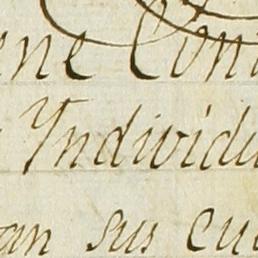 ene Con
Yndividu
an sus cue